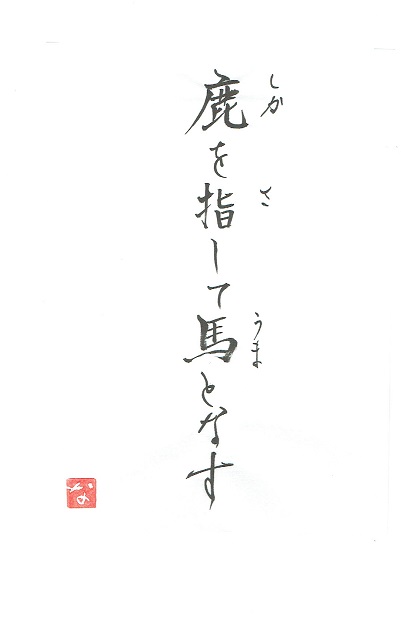 鹿を指して馬となす
しか
さ
うま
な